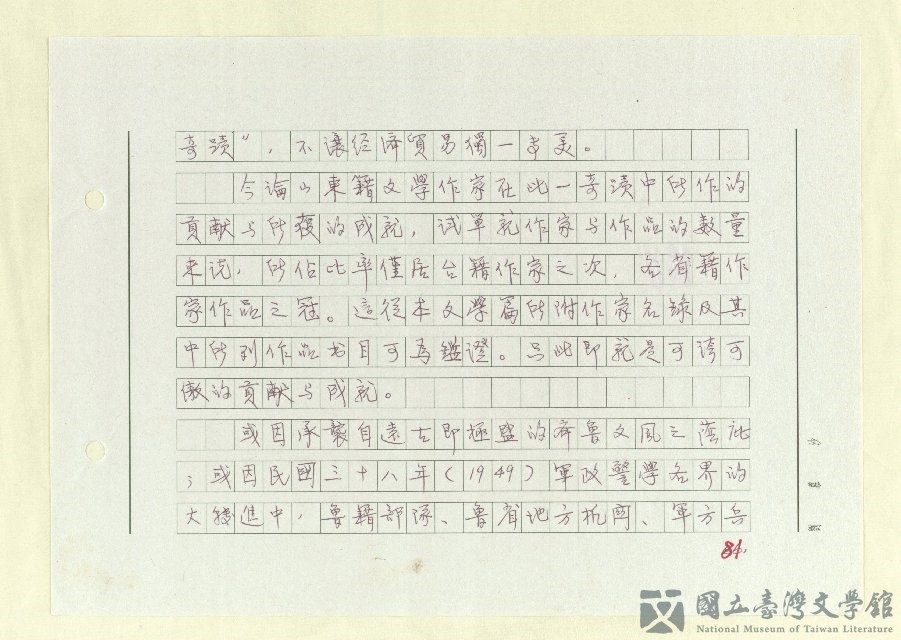 奇蹟”，不讓經濟貿易獨一專美。
今論山東籍文學作家在此一奇蹟中所作的
貢献与所獲的成就，试單就作家与作品的数量
来说，所佔比率僅居台籍作家之次，各省籍作
家作品之冠。這從本文學篇所附作家名錄及其
中所列作品书目可為鑑證。只此即就是可誇可
傲的貢献与成就。
或因承襲自遠古即極盛的齊鲁文風之蔭
；或因民國三十八年（1949）軍政警學各界的
大轉進中，魯籍部隊、魯省地方机関、軍方兵
84.
國立臺灣文學館
National Museum of Taiwan Literature